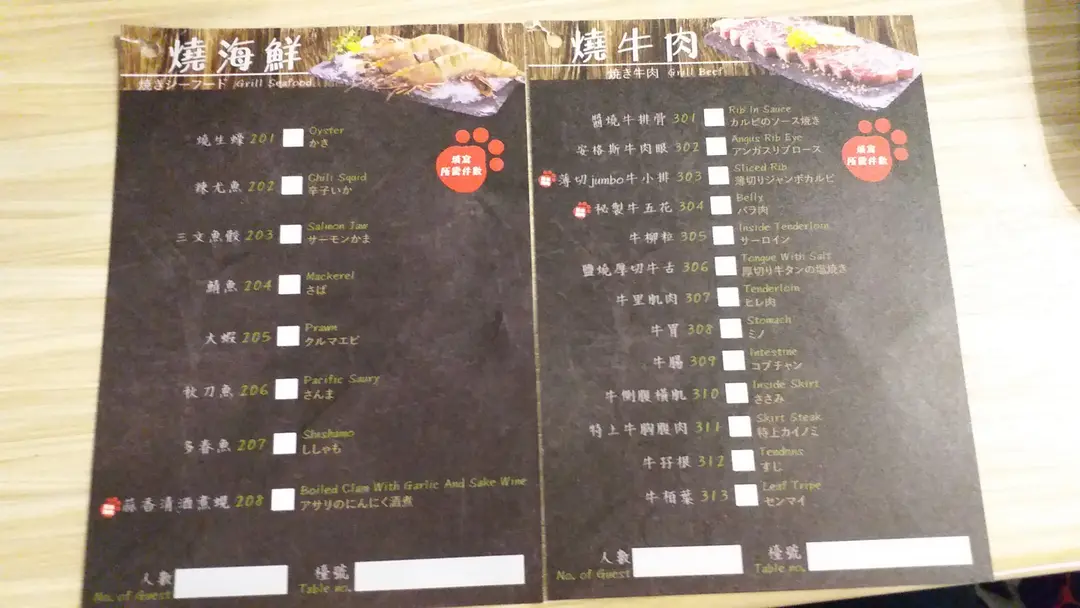 燒海鮮
焼きシーフード Grill Seafood
填寫
所需件數
燒生蠔 201 Oyster
かき
辣尤魚 202 Chili Sqaid
辛子いか
三文魚骹 203 Salmon Jaw
サーモンかま
鯖魚 204 Mackerel
さば
大蝦 205 Prawn
クルマエビ
秋刀魚 206 Pacific Saury
さんま
多春魚 207 Shishamo
ししゃも
蒜香清酒煮蜆 208 Boiled Clam With Garlic And Sake Wine
アサリのにんにく酒煮
人數
No. of Guest
檯號
Table no.
燒牛肉
焼き牛肉 Grill Beef
填寫
所需件數
醬燒牛排骨 301 Rib In Sauce
カルビのソース焼き
安格斯牛肉眼 302 Angus Rib Eye
アンガスリブロース
薄切jumbo牛小排 303 Sliced Rib
薄切りジャンボカルビ
秘製牛五花 304 Belly
バラ肉
牛柳粒 305 Inside Tenderloin
サーロイン
鹽燒厚切牛舌 306 Tongue With Salt
厚切りギタンの塩焼き
牛里肌肉 307 Tenderloin
ヒレ肉
牛胃 308 Stomach
ミノ
牛腸 309 Intestine
コプチャン
牛側腹橫肌 310 Inside Skirt
ささみ
特上牛胸腹肉 311 Skirt Steak
特上カイノミ
牛孖根 312 Tendons
すじ
牛栢葉 313 Leaf Tripe
センマイ
人數
No. of Guest
檯號
Table no.